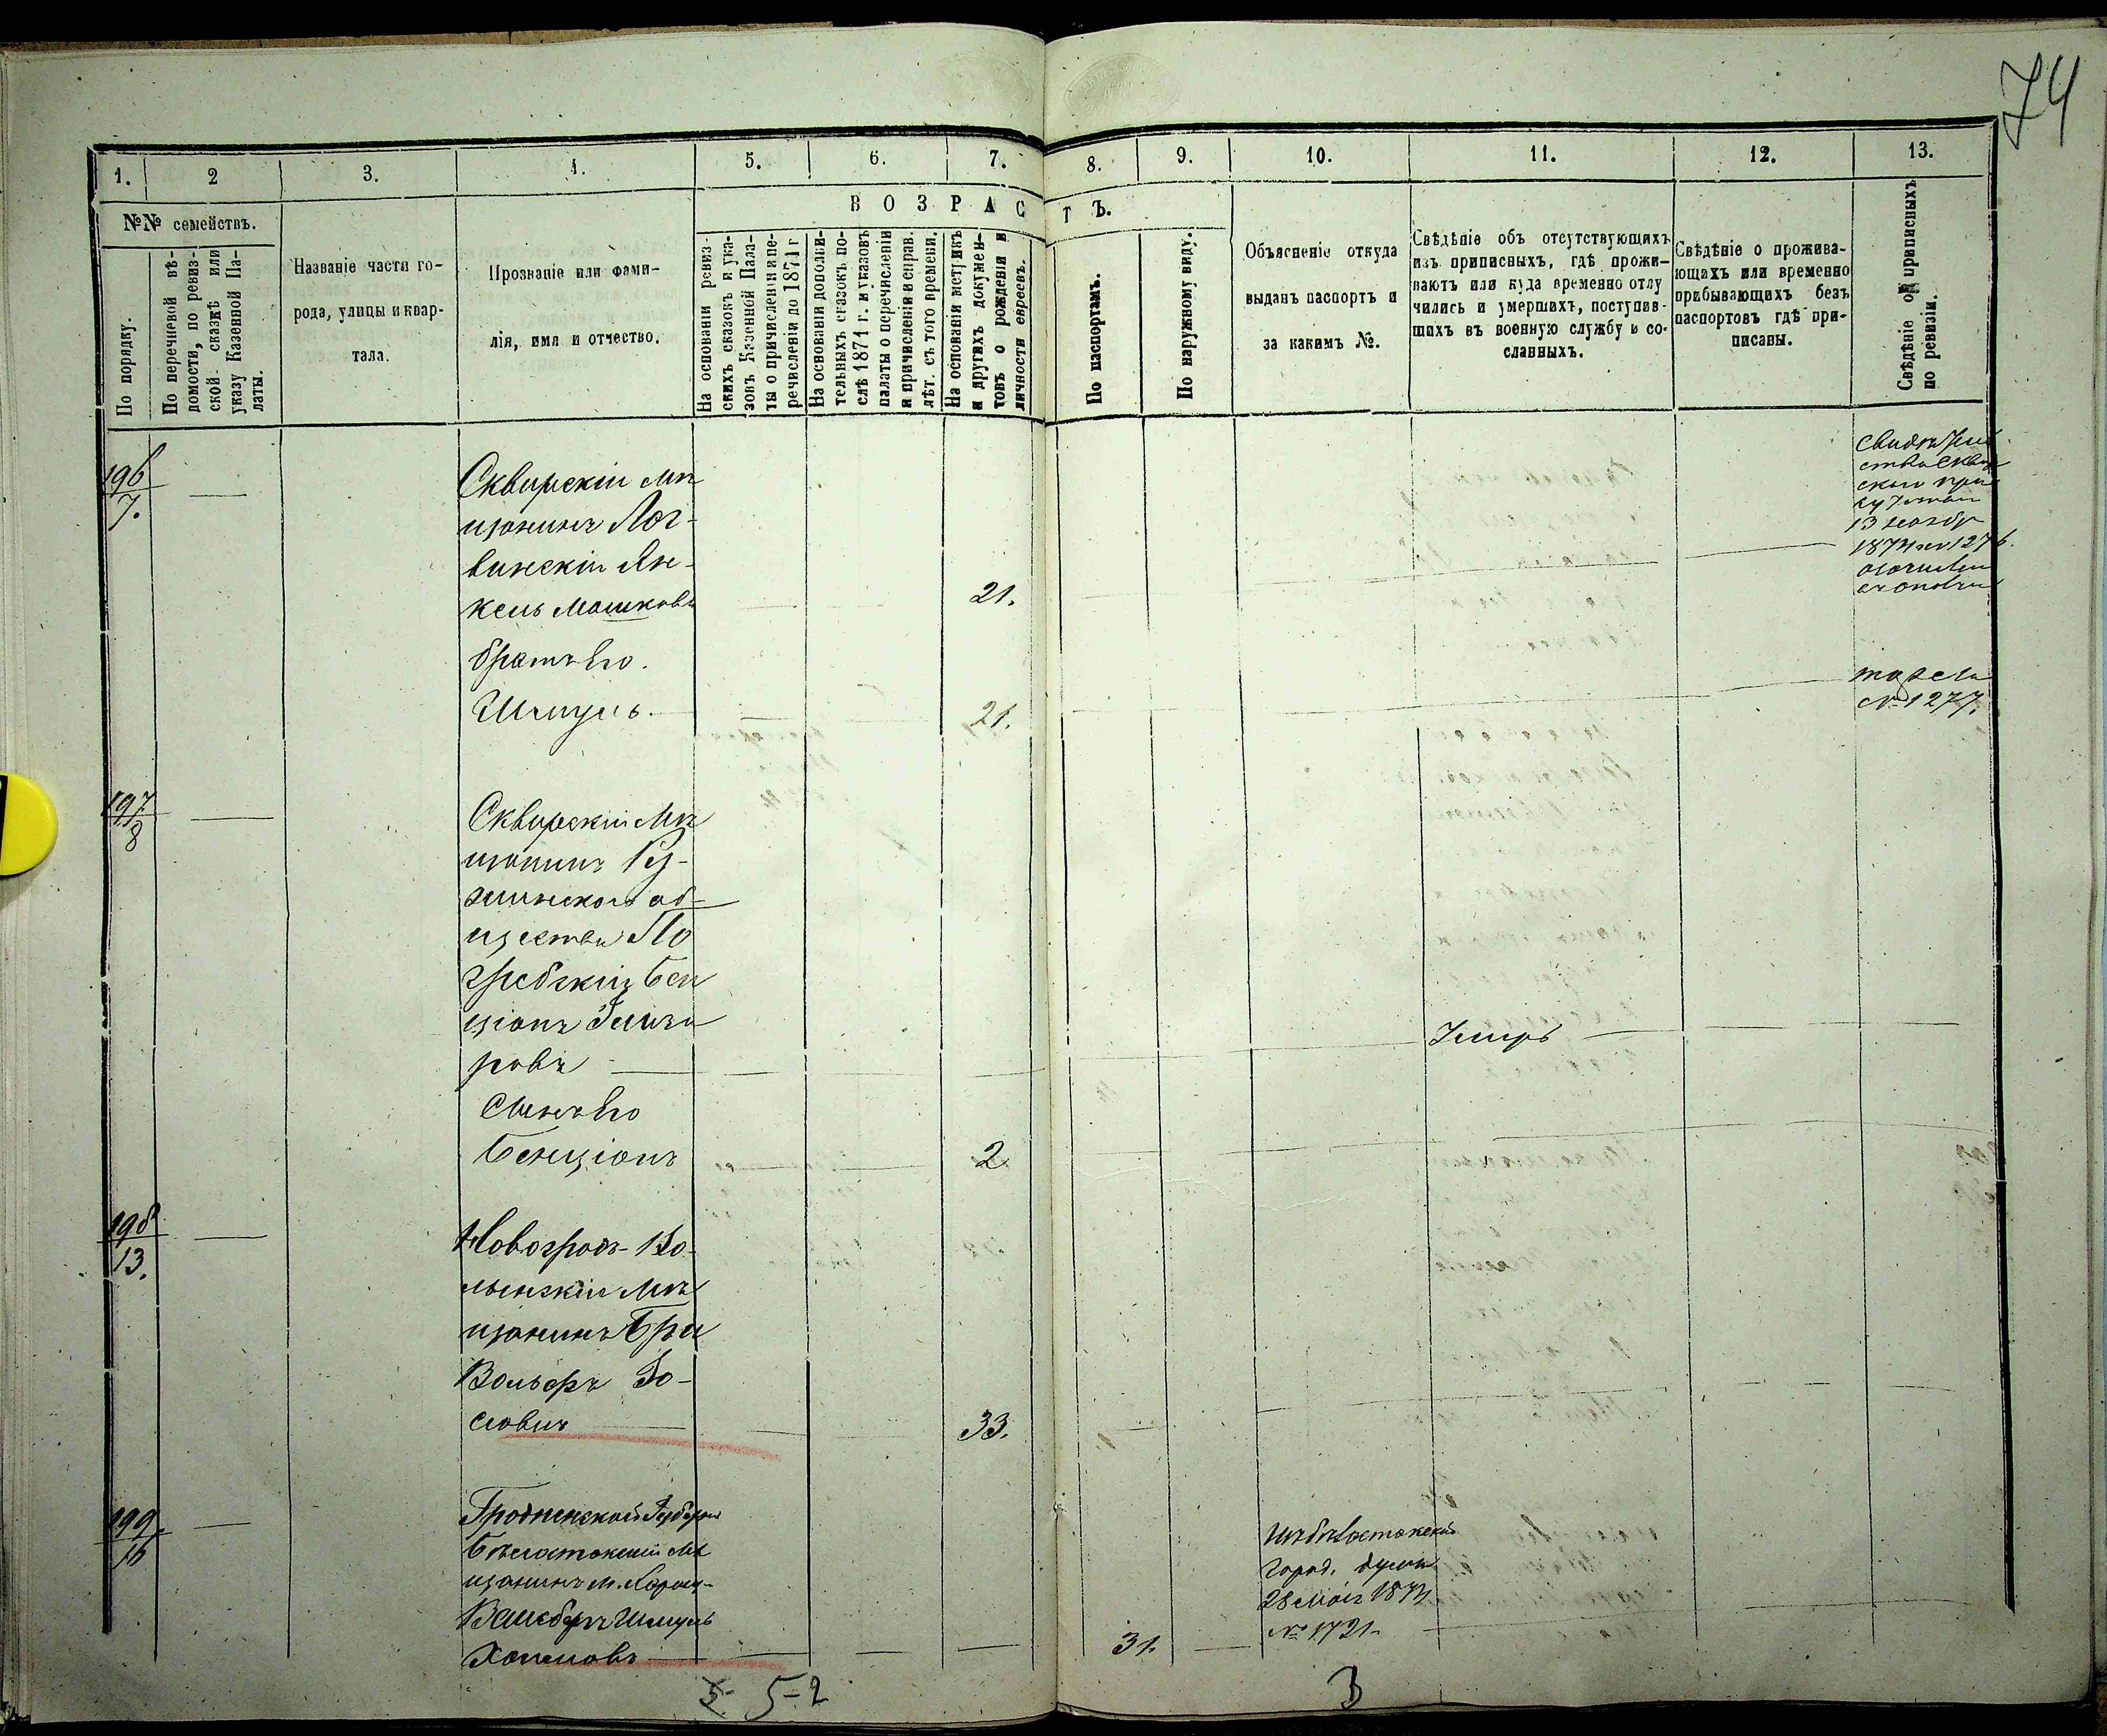 74
1. 2 3. 4. 5. 6. 7. 8. 9. 10. 11. 12. 13.
№№ семействъ.
В О З Р А С Т Ъ.
По порядку.
По перечневой вѣ-
домости, по ревиз-
ской сказкѣ или
указу Казенной Па-
латы.
Названіе части го-
рода, улицы и квар-
тала.
Прозваніе или фами-
лія, имя и отчество.
На основаніи ревиз-
скихъ сказокъ и ука-
зовъ Казенной Пала-
ты о причисленіи и пе-
речисленіи до 1871 г
На основаніи дополни-
тельныхъ сказокъ по-
слѣ 1871 г. и указовъ
палаты о перечисленіи
и причисленіи и справ.
лѣт. съ того времени.
На основаніи метрикъ
и другихъ докумен-
товъ о рожденіи и
личности евреевъ.
По паспортамъ.
По наружному виду.
Объясненіе откуда
выданъ паспортъ и
за какимъ №.
Свѣдѣніе объ отсутствующихъ
изъ приписныхъ, гдѣ прожи-
ваютъ или куда временно отлу
чились и умершихъ, поступив-
шихъ въ военную службу и со-
сланныхъ.
Свѣдѣніе о прожива-
ющихъ или временно
прибывающихъ безъ
паспортовъ гдѣ при-
писаны.
Свѣдѣніе о приписныхъ
по ревизіи.
196
7.
Сквирскій мѣ
щанинъ Лог-
винскій Ян-
кель Мошковъ
21.
братъ его.
Шмуль.
21.
13 ноябр
1874
тоже
№ 1277.
197
8
Сквирскій мѣ
щанинъ Ру-
жинскаго об-
щества По
гребскій Бен
ціонъ
ровъ
Умеръ
Сынъ его
Бенціонъ
2
198
13.
Новоградъ-Во-
лынскій мѣ
щанинъ
Вольфъ Іо-
совичъ
33.
199.
16
Гродненской Губерніи
Бѣлостокскій мѣ
щанинъ м.
Вайсбергъ Шмуль
Хаимовъ
31.
город. думы
28 мая 1874
№ 1721.
5-2
3